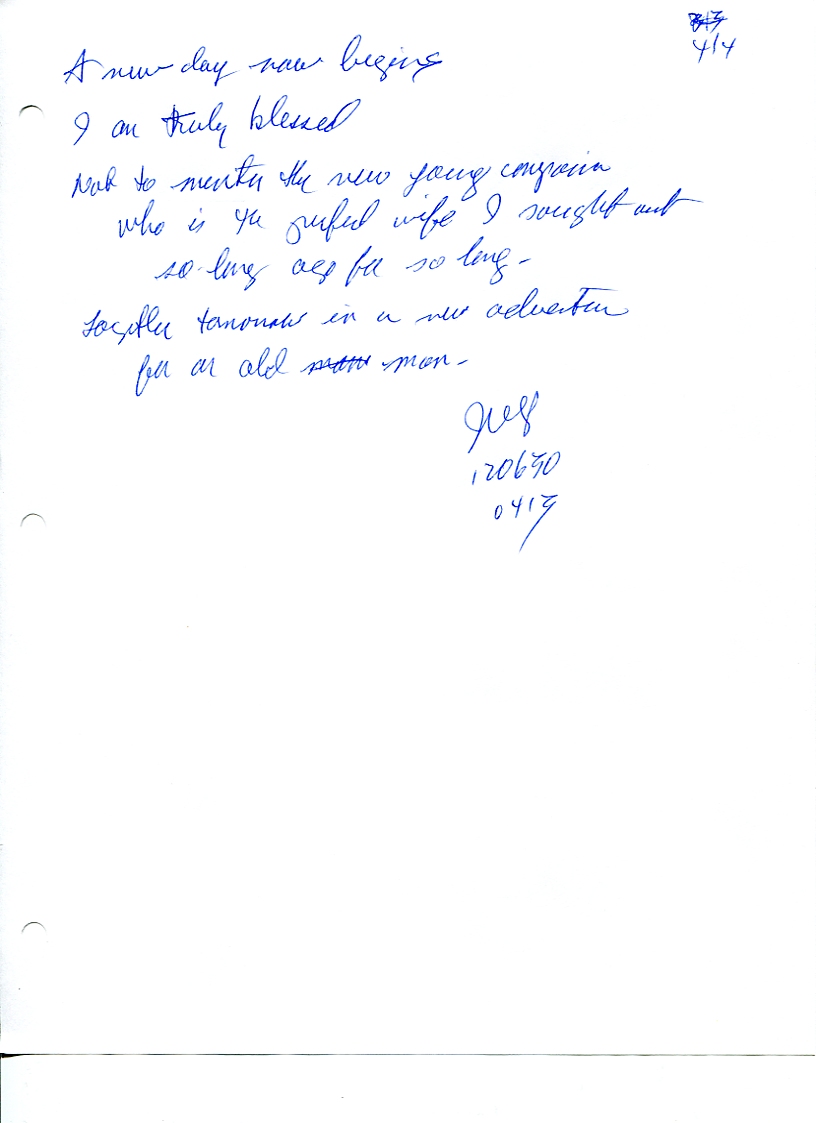 4/4
A new day now begins
I am truly blessed
Not to mention the new young companion
who is the perfect wife I sought out
so long ago for so long -
Together tomorrow in a new adventure
for an old man -
120690
0419